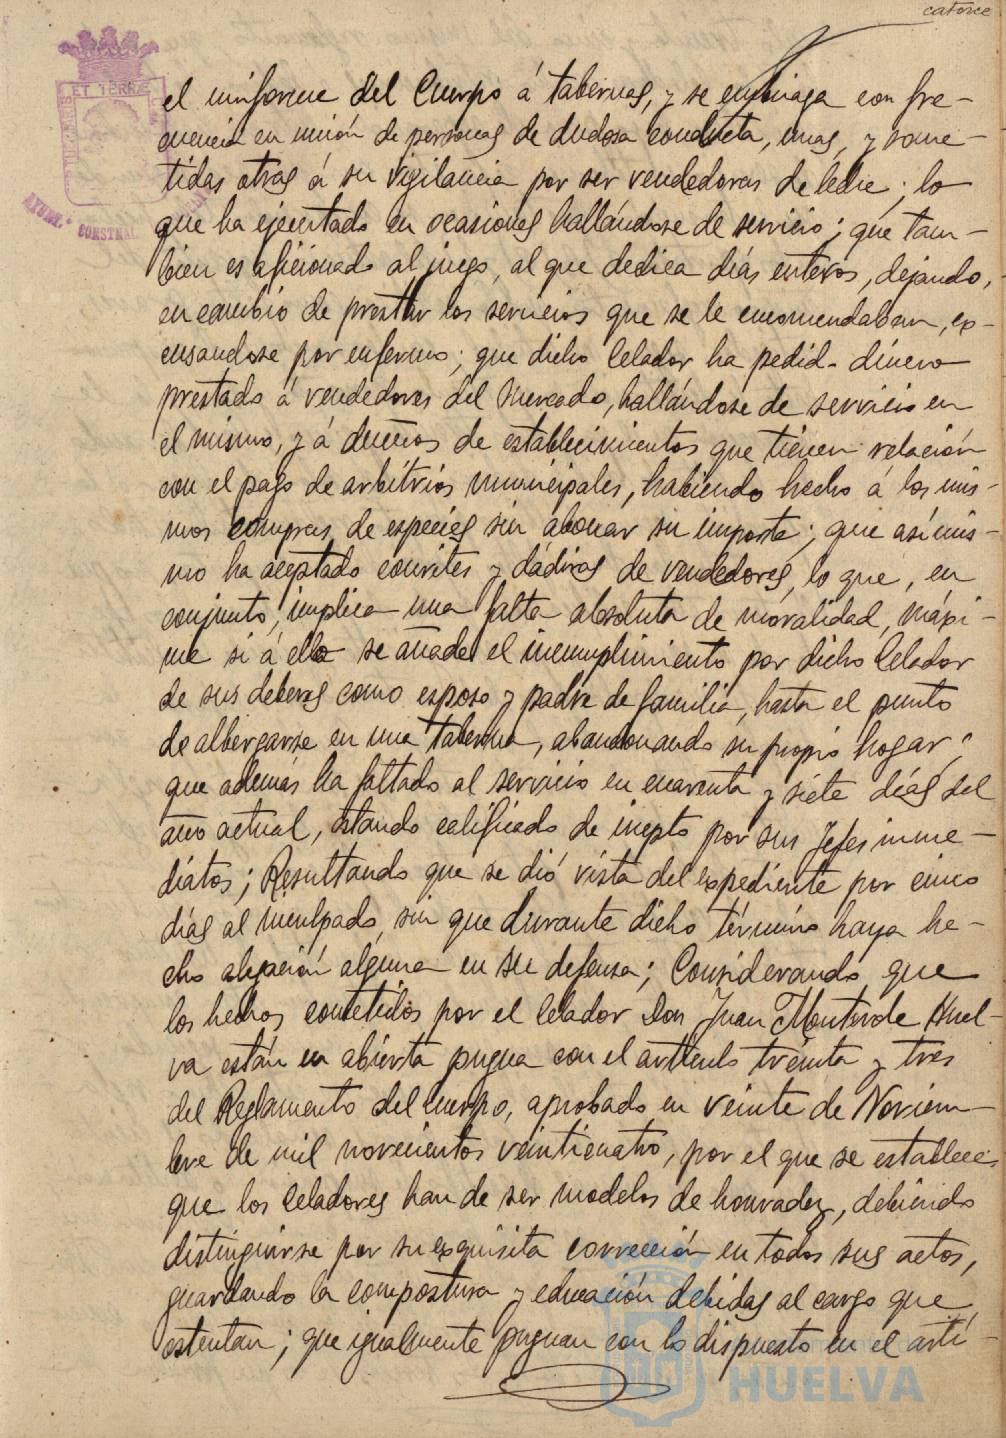 catorce
ET TERRÆ
el uniforme del Cuerpo á tabernas, y se embriaga con fre-
cuencia en unión de personas de dudosa conducta, unas, y some-
tidas otras á su vigilancia por ser vendedoras de leche; lo
que ha ejecutado en ocasiones hallándose de servicio; que tam-
bien es aficionado al juego, al que dedica días enteros, dejando,
en cambio de prestar los servicios que se le encomendaban, ex-
cusandose por enfermo; que dicho Celador ha pedido dinero
prestado á vendedores del Mercado, hallándose de servicio en
el mismo, y á dueños de establecimientos que tienen relación
con el pago de arbitrios municipales, habiendo hecho á los mis-
mos compras de especies sin abonar su importe; que asímis-
mo ha aceptado convites y dádivas de vendedores, lo que, en
conjunto, implica una falta absoluta de moralidad, máxi-
me si á ello se añade el incumplimiento por dicho Celador
de sus deberes como esposo y padre de familia, hasta el punto
de albergarse en una taberna, abandonando su propio hogar;
que además ha faltado al servicio en cuarenta y siete días del
año actual, estando calificado de inepto por sus Jefes inme-
diatos; Resultando que se dió vista del expediente por cinco
días al inculpado, sin que durante dicho término haya he-
cho alegación alguna en su defensa; Considerando que
los hechos cometidos por el Celador Don Juan Monterde Huel-
va están en abierta pugna con el artículo treinta y tres
del Reglamento del Cuerpo, aprobado en veinte de Noviem-
bre de mil novecientos veinticuatro, por el que se establece
que los Celadores han de ser modelos de honradez, debiendo
distinguirse por su exquisita corrección en todos sus actos,
guardando la compostura y educación debidas al cargo que
ostentan; que igualmente pugnan con lo dispuesto en el artí-
HUELVA